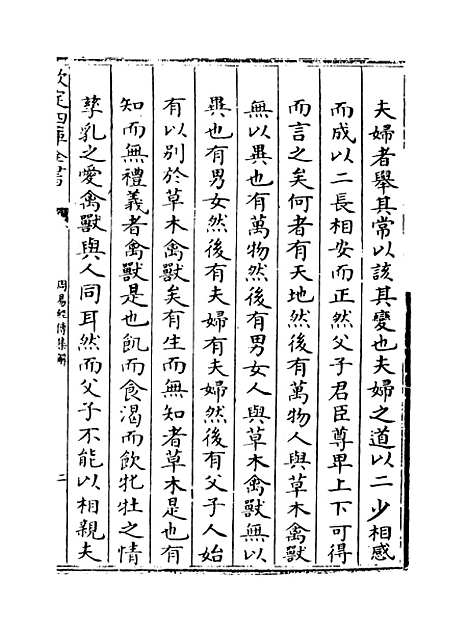 夫婦者舉其常以該其變也夫婦之道以二少相感
而成以二長相安而正然父子君臣尊畀上下可得
而言之矣何者有天地然後有萬物人與草木禽獸
無以異也有萬物然後有男女人與草木禽獸無以
異也有男女然後有夫婦有夫婦然後有父子人始
有以别於草木禽獸矣有生而無知者草木是也有
知而無禮義者禽獸是也飢而食渴而飲牝牡之情
孳乳之愛禽獸與人同耳然而父子不能以相親夫
欽定四庫全書
周易經傳集解
二